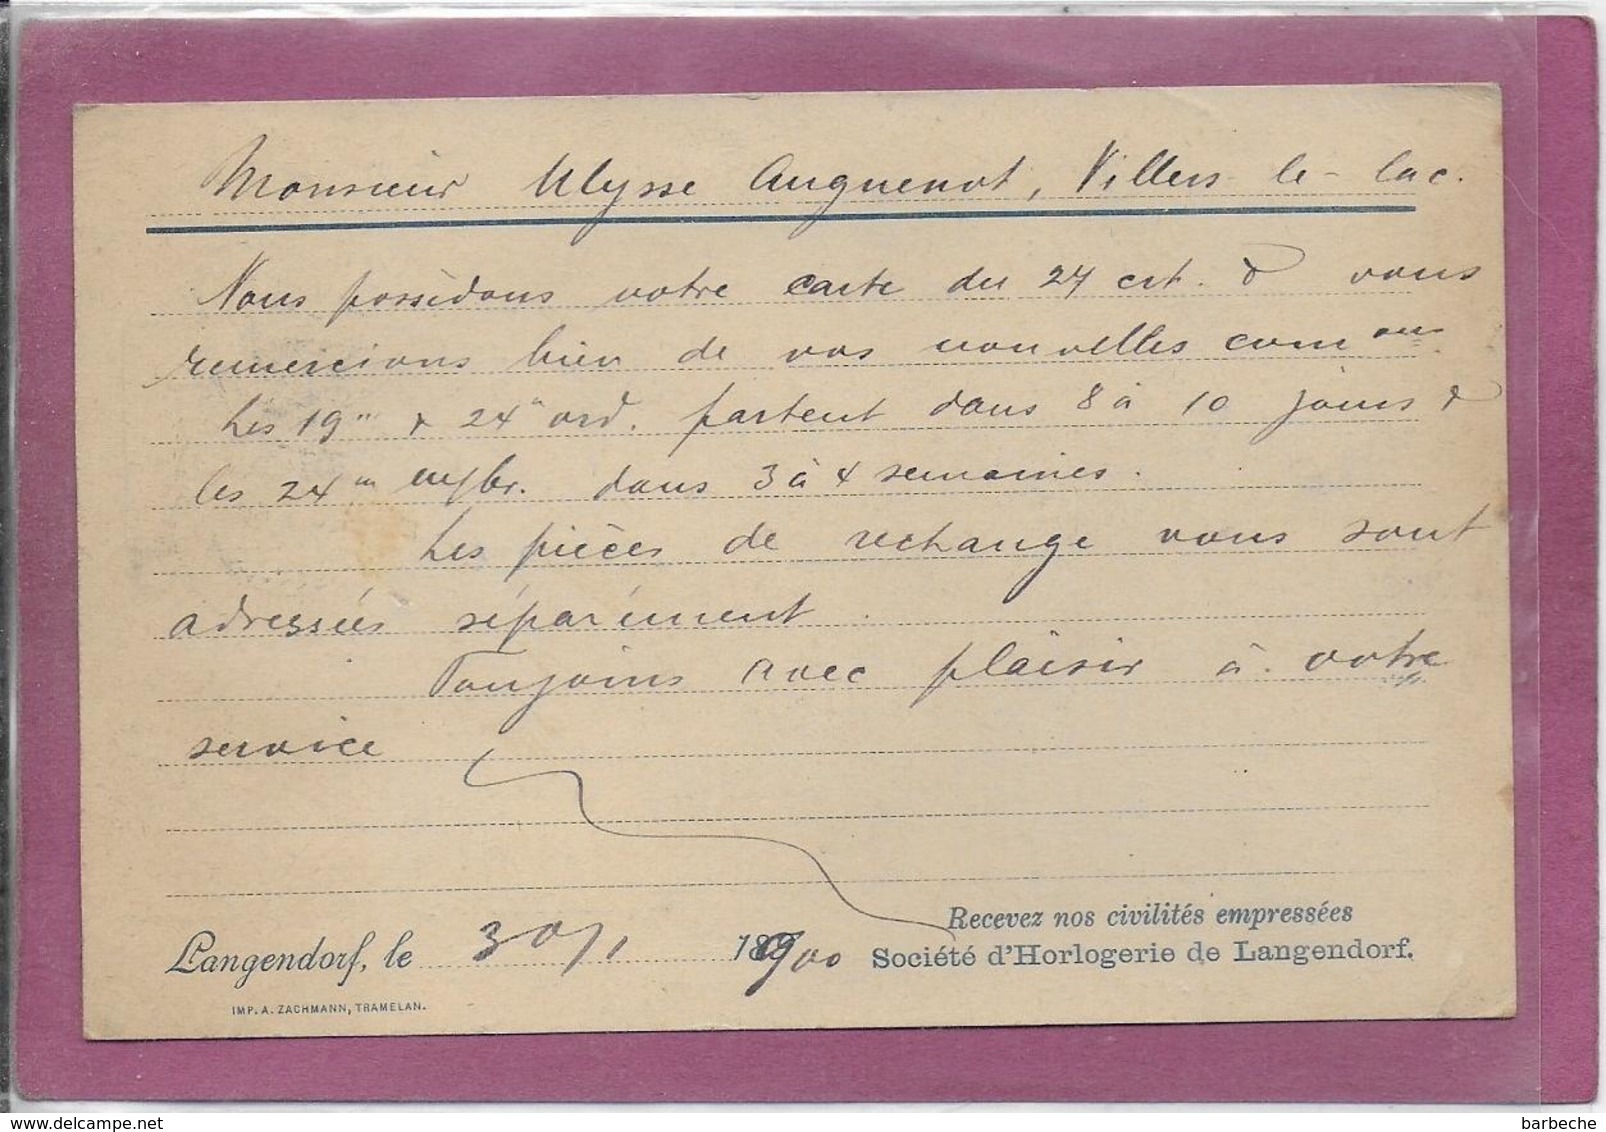 Monsieur Ulysse Anguenot, Villers-le-lac.
Nous possèdons votre carte du 27 crt. & vous
remercions bien de vos nouvelles comm ons
Les 19''' & 24''' ord. partent dans 8 à 10 jours &
les 24''' dans 3 à 4 semaines.
Les pièces de rechange vous sont
adressées séparément.
Toujours avec plaisir à votre
service
Recevez nos civilités empressées
Langendorf, le 30/1 1900 Société d'Horlogerie de Langendorf.
IMP. A. ZACHMANN, TRAMELAN.
barbeche